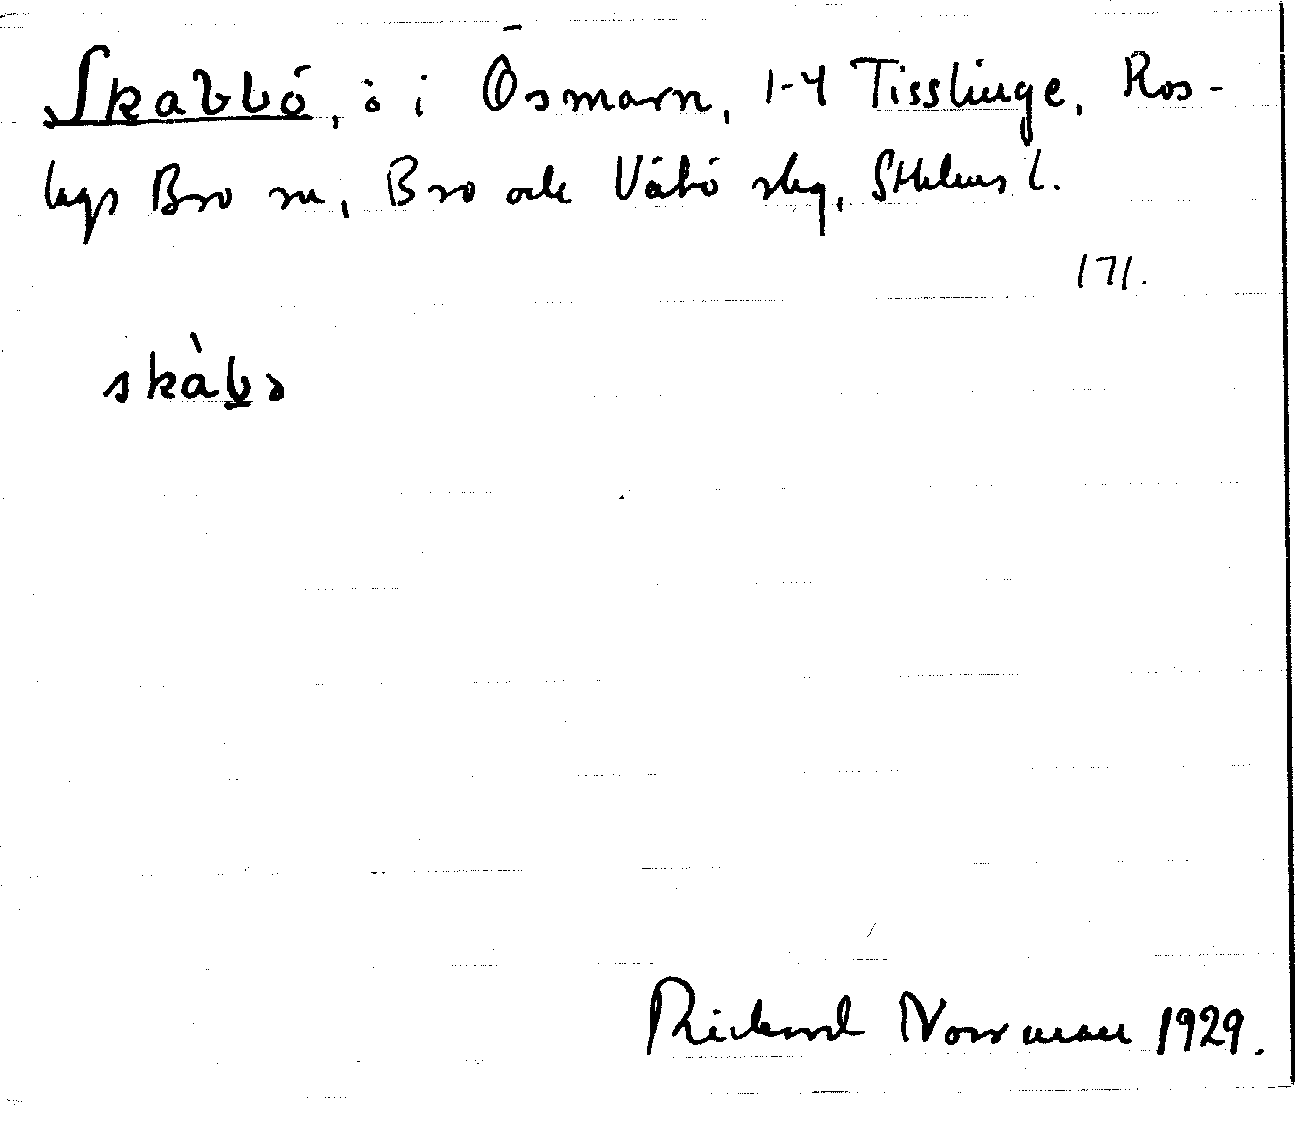 Skabbö, ö i Ösmarn, 1-4 Tisslinge, Ros-
lags Bro sn, Bro och Vätö skg, Sthlms l.
171.
skàbə
Rickard Norrman 1929.